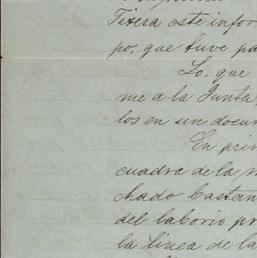 Tixera este infor
po, que tuve pa
Lo, que
me a la Junta
los en un docum
En prin
cuadra de la m
chado bastan
del laborio pr
la linea de la